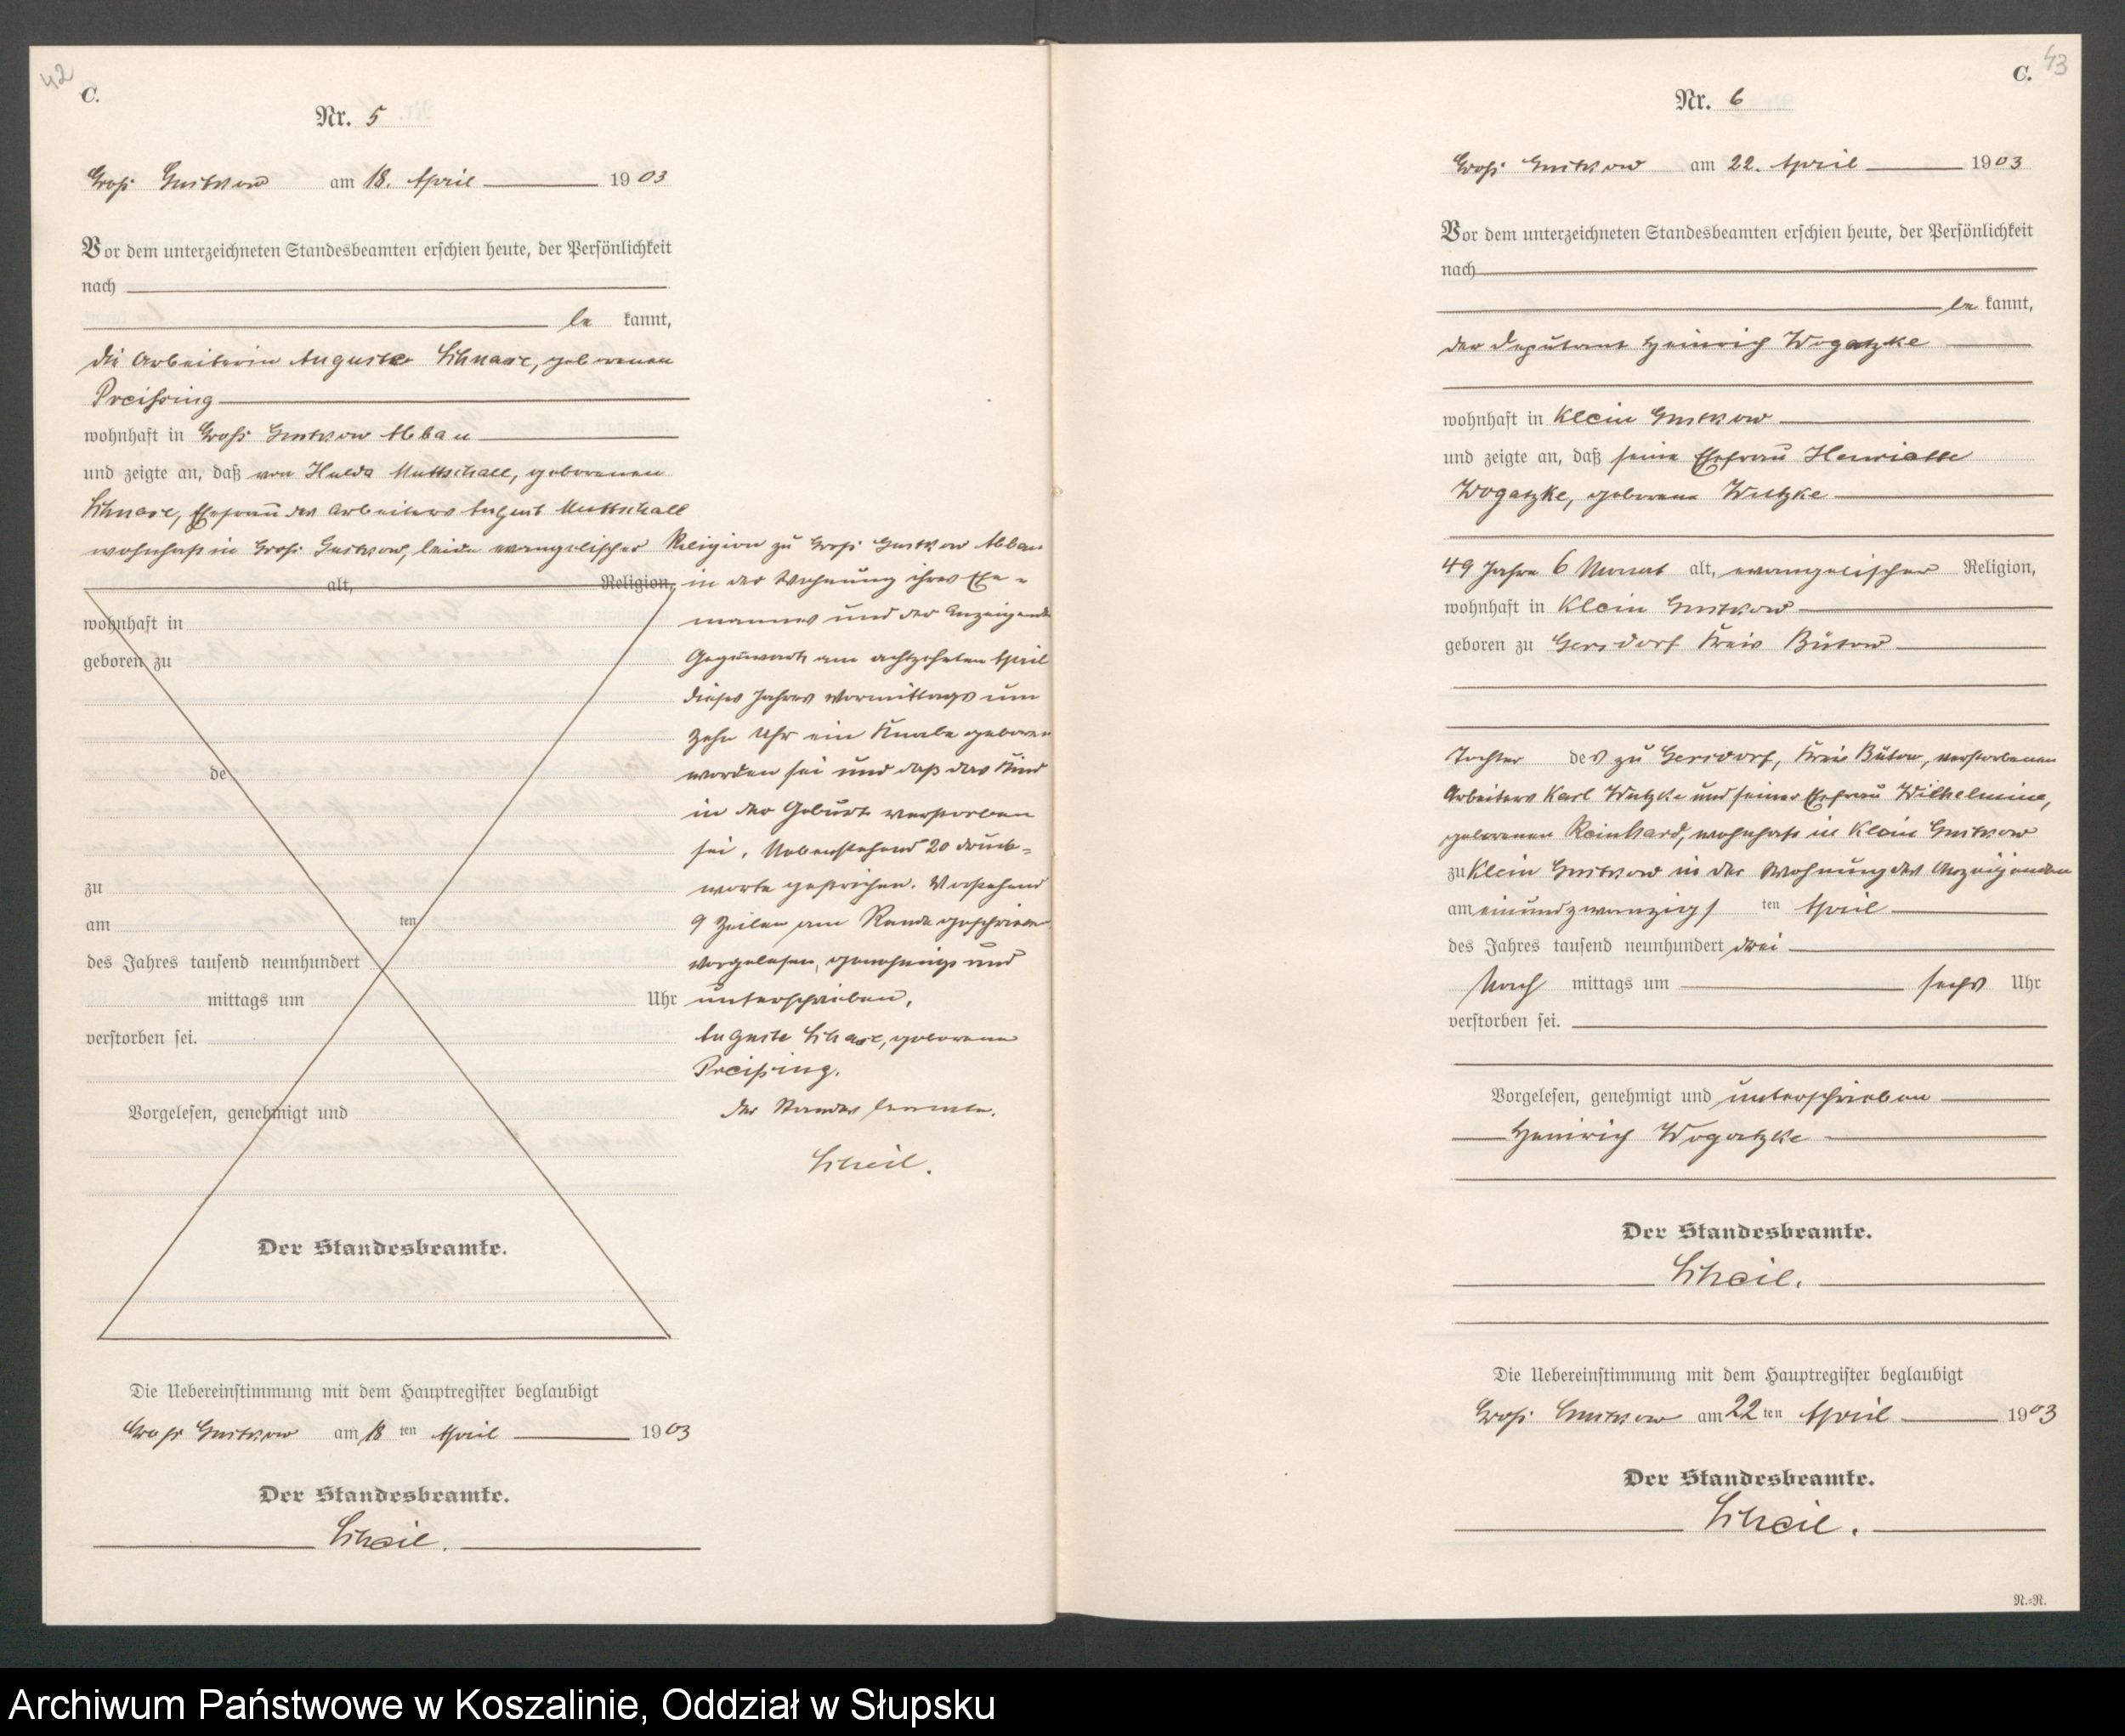 42
C.
Nr. 5
Groß Gustkow am 18. April 1903
Vor dem unterzeichneten Standesbeamten erschien heute, der Persönlichkeit
nach
be kannt,
die Arbeiterin Auguste Schnase, geborenen
Preißing
wohnhaft in Groß Gustkow Abbau
und zeigte an, daß von Hulda Muttschall, geborenen
Schnase, Ehefrau des Arbeiters August Muttschall
wohnhaft in Groß Gustkow, beide evangelischer Religion zu Groß Gustkow Abbau
alt, Religion,
in der Wohnung ihres Ehe=
mannes und der Anzeigende
Gegenwart am achtzehnten April
dieses Jahres Vormittags um
zehn Uhr ein Knabe geboren
worden sei und daß das Kind
in der Geburt verstorben
sei. Nebenstehend 20 Druck=
worte gestrichen. Vorstehend
9 Zeilen am Rande geschrieben
Vorgelesen, genehmigt und
unterschrieben.
Auguste Schase, geborene
Preißing.
Der Standesbeamte.
Scheil.
wohnhaft in
geboren zu
de
zu
am ten
des Jahres tausend neunhundert
mittags um Uhr
verstorben sei.
Vorgelesen, genehmigt und
Der Standesbeamte.
Die Uebereinstimmung mit dem Hauptregister beglaubigt
Groß Gustkow am 18 ten April 1903
Der Standesbeamte.
Scheil.
C. 43
Nr. 6
Groß Gustkow am 22. April 1903
Vor dem unterzeichneten Standesbeamten erschien heute, der Persönlichkeit
nach
be kannt,
der Deputant Heinrich Wogatzke
wohnhaft in Klein Gustkow
und zeigte an, daß seine Ehefrau Henriette
Wogatzke, geborene Wutzke
49 Jahre 6 Monat alt, evangelischer Religion,
wohnhaft in Klein Gustkow
geboren zu Gersdorf Kreis Bütow
Tochter des zu Gersdorf, Kreis Bütow, verstorbenen
Arbeiters Karl Wutzke und seiner Ehefrau Wilhelmine,
geborenen Reinhard, wohnhaft in Klein Gustkow
zu Klein Gustkow in der Wohnung des Anzeigenden
am einundzwanzigs ten April
des Jahres tausend neunhundert drei
Nach mittags um sechs Uhr
verstorben sei.
Vorgelesen, genehmigt und unterschrieben
Heinrich Wogatzke
Der Standesbeamte.
Scheil.
Die Uebereinstimmung mit dem Hauptregister beglaubigt
Groß Gustkow am 22 ten April 1903
Der Standesbeamte.
Scheil.
N.-N.
Archiwum Państwowe w Koszalinie, Oddział w Słupsku